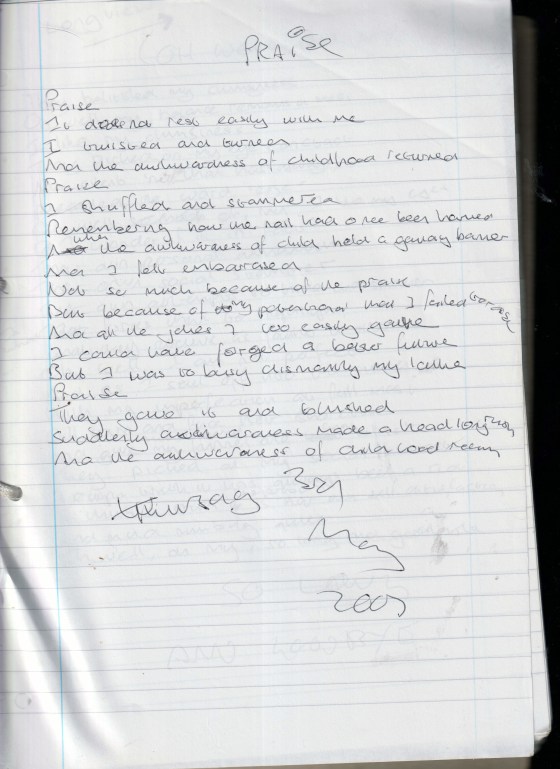 PRAiSE
Praise
It doesend rest easily with me
I twisted and turned
And the awkwardness of childhood returned
Praise
I shuffled and stammered
Remembering how the nail had once been hamed
when the awkwardness of child held a banner
And I felt embarased
Not so much because of the praise
But because of my potentional that I failed to raise
And all the jokes I too easily gave
I could have forged a better future
But I was to busy dismantly my
Praise
They gave it and blushed
Suddenly awkwardness made a head long
And the awkwardness of child hood
3rd
May